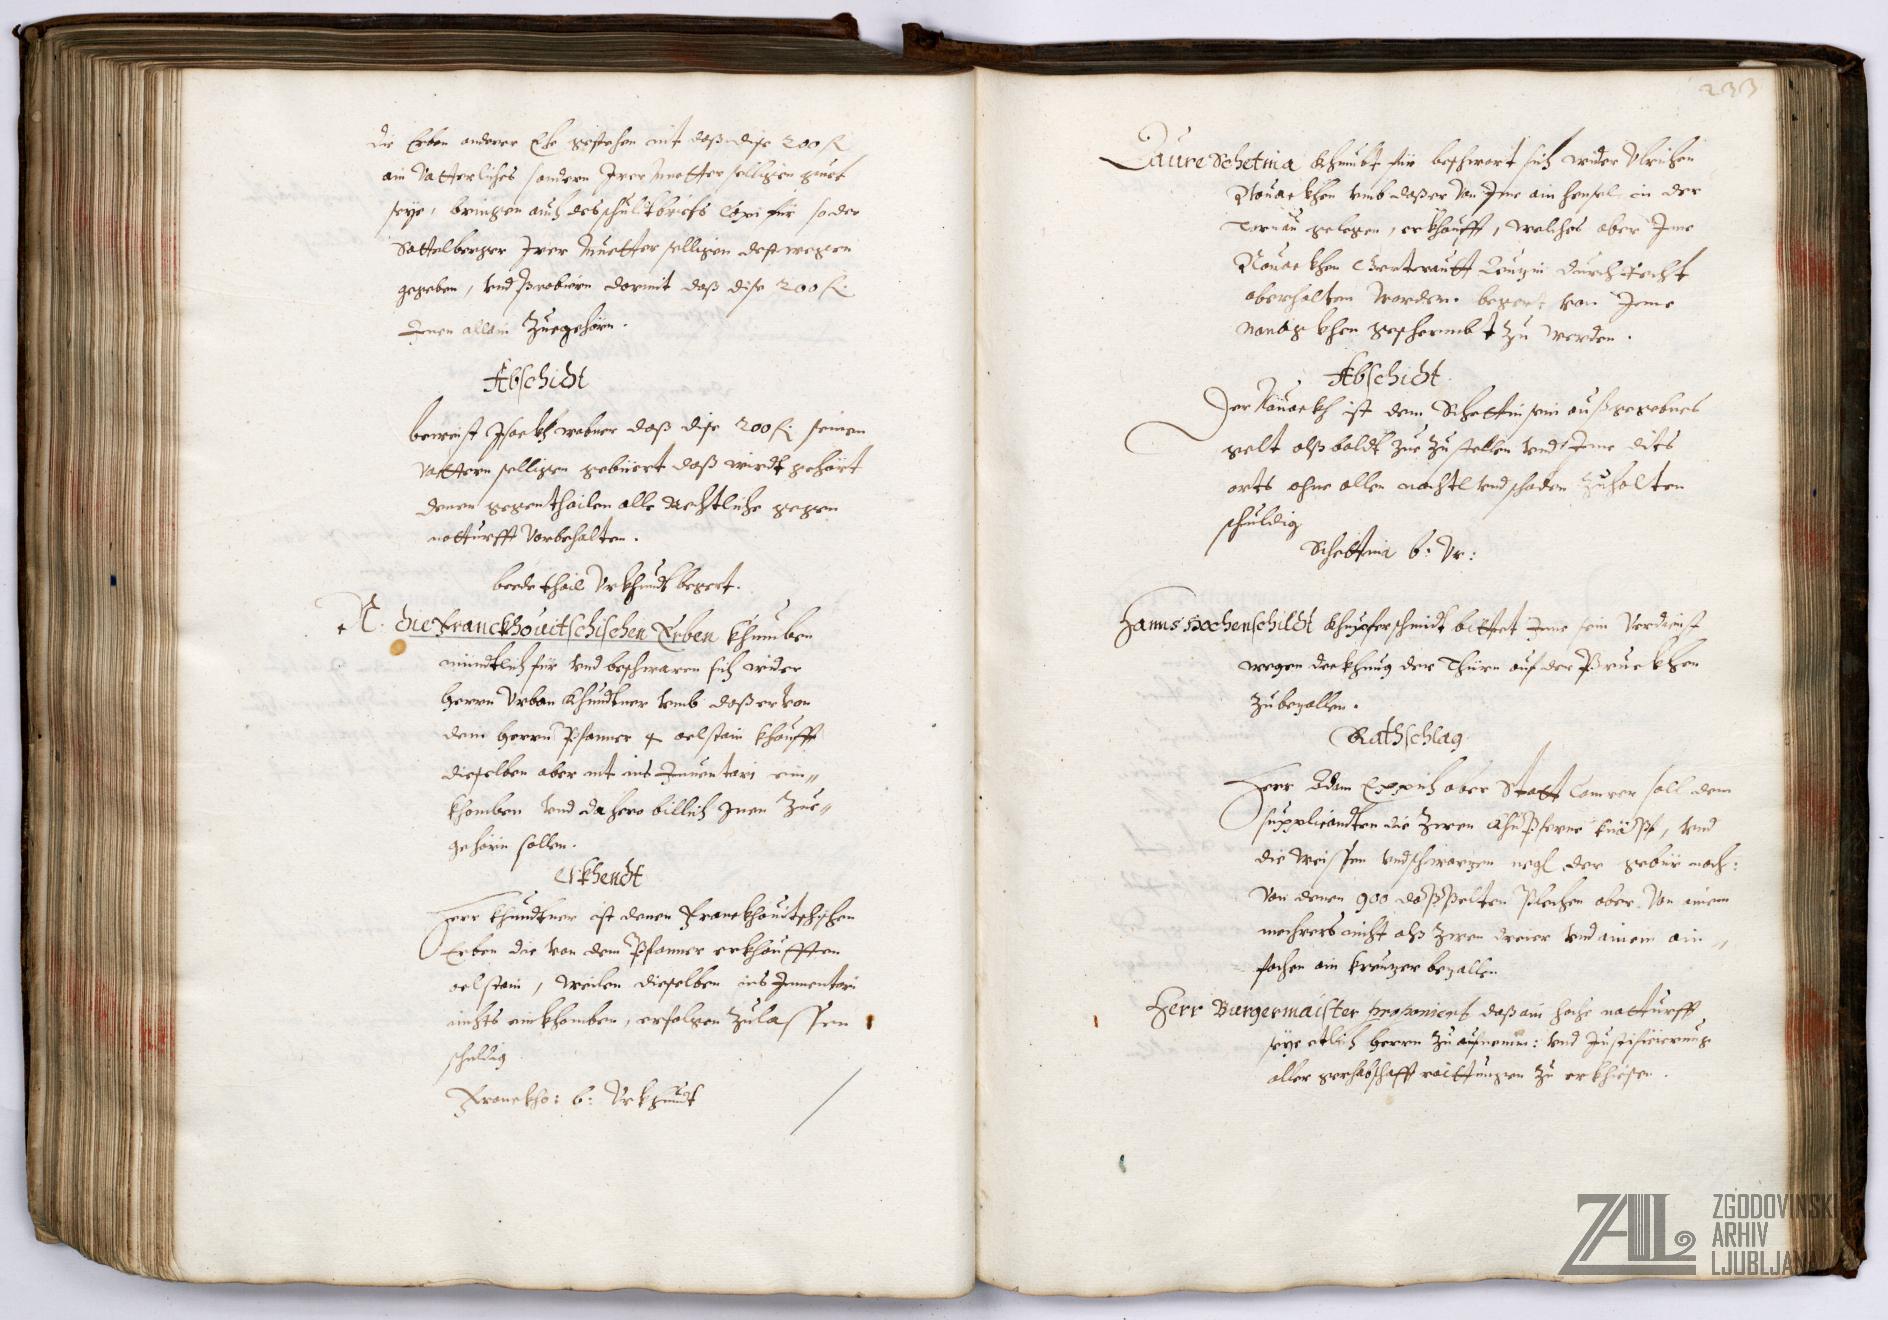 die Erben anderer Ehe gestehen nit daß dise 200 fl
ain Vatterliches sondern Irer Muetter selligen guett
seye, bringen auch des schuldtbriefs Copi für so der
Sattelberger Irer Muetter selligen deßwegen
gegeben, vnd Probiern darmit daß dise 200 fl:
Inen allain Zuegehörn.
Abschidt
beweist Isaekh wabner daß dise 200 fl: seinem
Vattern selligen gebüert daß wirdt gehört
denen gegenthailen alle Rechtliche gegen
notturfft Vorbehalten.
beede thail Vrkhundt begert.
N. die Franckhouitschischen Erben khumben
mündtlich für vnd beschwaren sich wider
herrn Vrban Khundtner vmb daß er von
dem herrn Pfanner 4 oelstain khaufft
dieselben aber nit ins Inuentari ein„
khomben vnd dahero billich Inen Zue„
gehörn sollen.
Erkhendt
Herr Khundtner ist denen Franckhouitschischen
Erben die von dem Pfanner erkhaufften
oelstain, weilen dieselben ins Inuentari
nichts einkhomben, erfolgen Zulassen
schuldig
Franckho: b: Vrkhundt
233
Laure Schetina khumbt für beschwart sich wider Vlrichen
Nouackhen vmb daß er von Ime ain heusel in der
Tornau gelegen, erkhaufft, welches aber Ime
Nouackhen durch Recht
aberhalten worden. begert von Ime
Nouagkhen geschermbt zu werden.
Abschidt
Der Nouackh ist dem Schettin sein außgegebnes
gelt alßbaldt Zue Zustellen vnd Ime dits
orts ohne allen nachtl vnd schaden Zuhalten
schuldig
Schettina b: Vr:
Hanns Hochenschildt Khupferschmidt bittet Ime sein Verdienst
wegen deckhung der Thürn auf der Pruckhen
Zubezallen.
Rathschlag
Herr Adam Eppich ober Statt Camrer soll dem
supplicandten die Zwen Khupferne knöpf, vnd
die weissen vnd schwarzen negl der gebür nach:
Von denen 900 doppelten Plechen aber Von ainem
mehrers nicht alß Zwen dreier vnd ainem ain„
fachen ain kreuzer bezallen
Herr Burgermaister proponiert daß ain hohe notturfft
seye etlich herrn Zu aufnemm: vnd Justificierung
aller gerhabschafft raittungen Zu erkhiesen.
ZAL
ZGODOVINSKI
ARHIV
LJUBLJANA